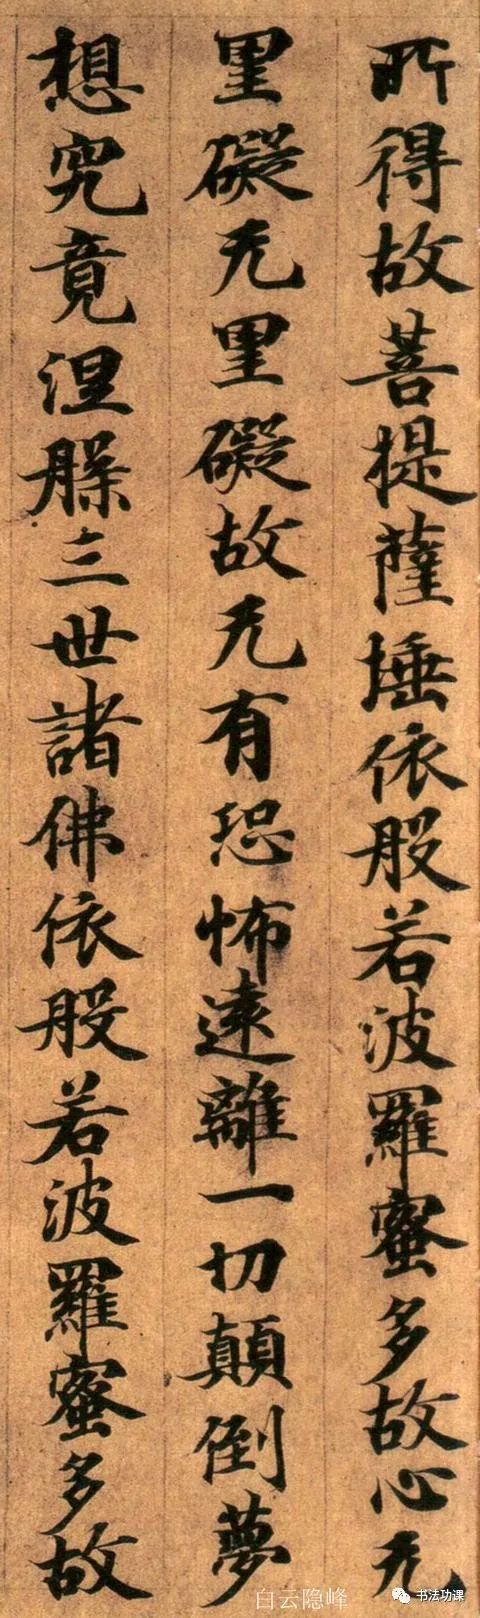 所得故菩提薩埵依般若波羅蜜多故心无
罣礙无罣礙故无有恐怖遠離一切顛倒夢
想究竟涅槃三世諸佛依般若波羅蜜多故
白云隐峰
书法功课